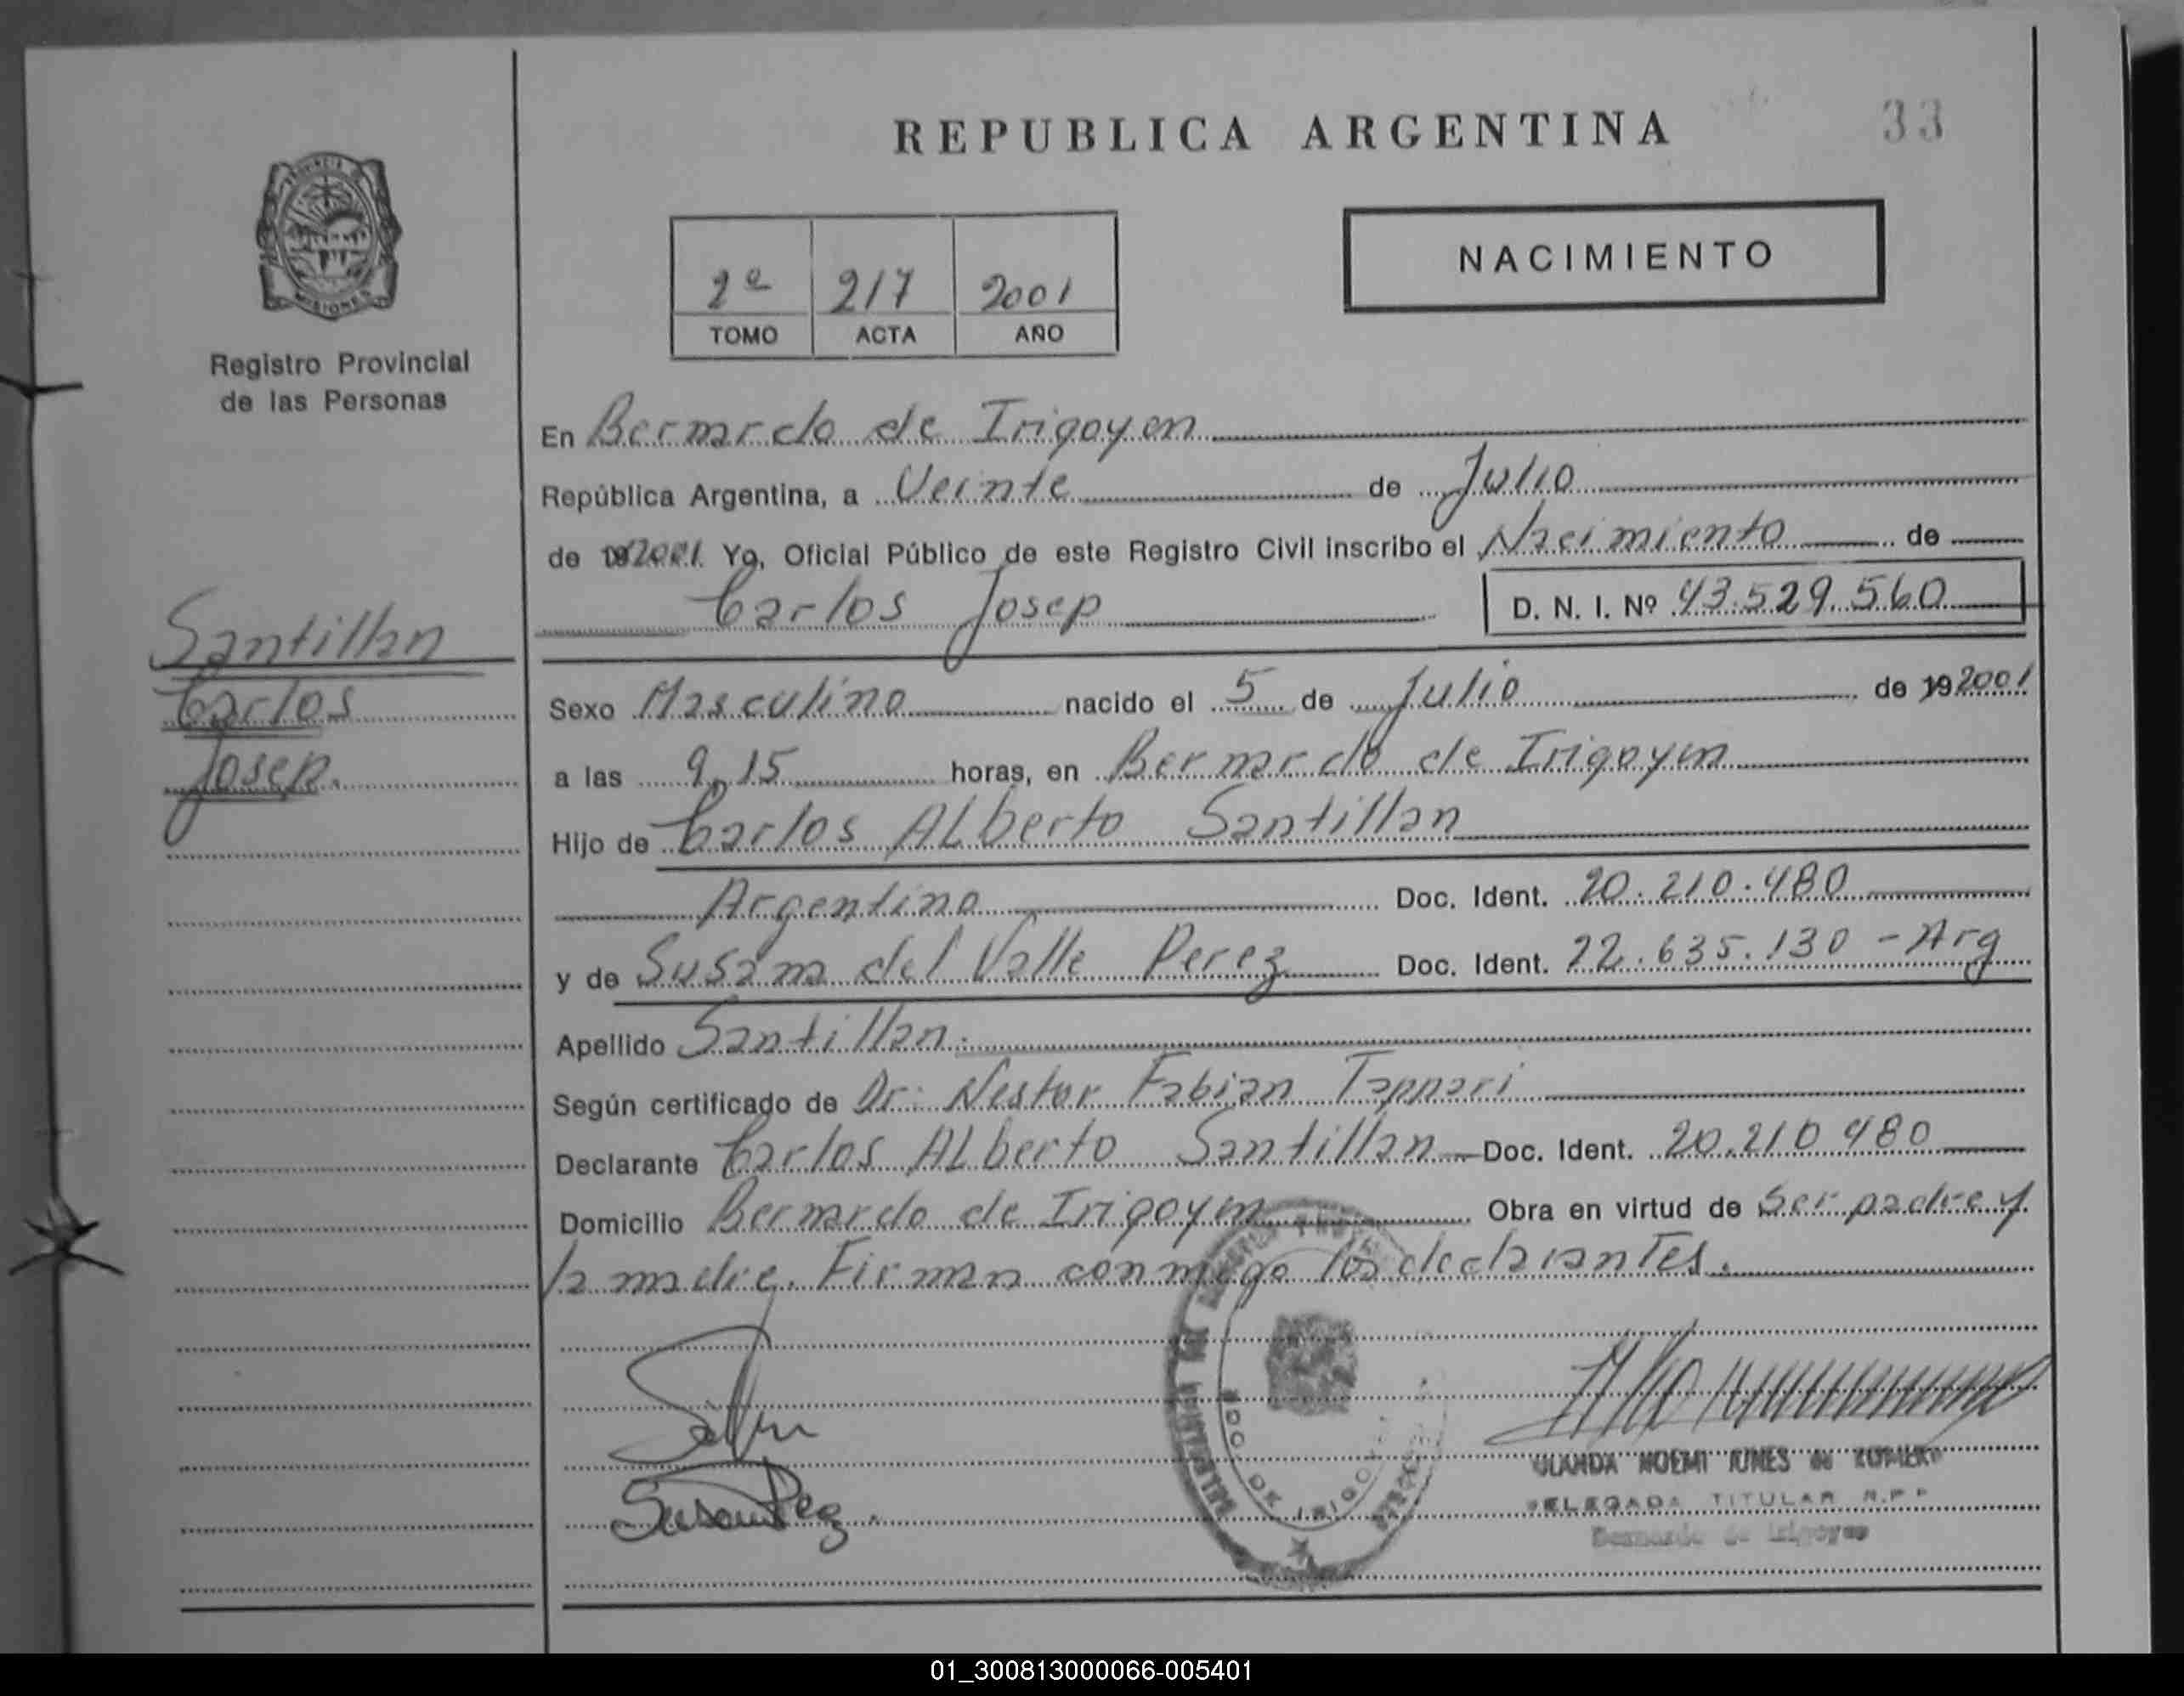 REPUBLICA ARGENTINA
33
PROVINCIA DE
MISIONES
Registro Provincial
de las Personas
2º 217 2001
TOMO ACTA AÑO
NACIMIENTO
En Bernardo de Irigoyen
República Argentina, a Veinte de Julio
de 192001. Yo, Oficial Público de este Registro Civil inscribo el Nacimiento de
Carlos Josep
D. N. I. Nº 43.529.560
Santillan
Carlos
Josep.
Sexo Masculino nacido el 5 de Julio de 192001
a las 9,15 horas, en Bernardo de Irigoyen
Hijo de Carlos ALberto Santillan
Argentino Doc. Ident. 20.210.480
y de Susana del Valle Perez Doc. Ident. 22.635.130 - Arg
Apellido Santillan.
Según certificado de Dr: Nestor Fabian Tappari
Declarante Carlos ALberto Santillan Doc. Ident. 20.210 480
Domicilio Bernardo de Irigoyen Obra en virtud de Ser padre y
la madre. Firman conmigo los declarantes.
NOEMI de
DELEGADA TITULAR R.P.P
Bernardo de Irigoyen
BDO. DE IRIGO
01_300813000066-005401